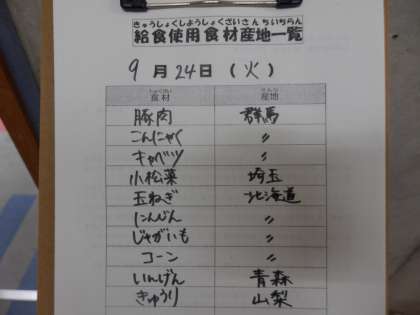 きゅうしょくしようしょくざいさんちいちらん
給食使用食材産地一覧
9月24日(火)
しょくざい さんち
食材 産地
豚肉 群馬
こんにゃく 〃
キャベツ 〃
小松菜 埼玉
玉ねぎ 北海道
にんじん 〃
じゃがいも 〃
コーン 〃
いんげん 青森
きゅうり 山梨